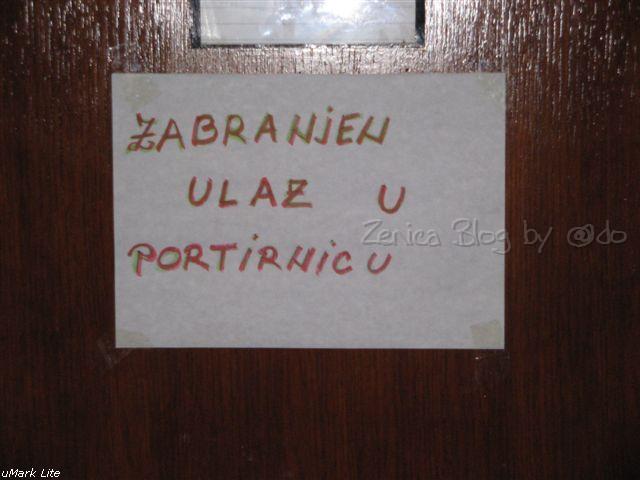 ZABRANJEN
ULAZ U
Zenica Blog by @do
PORTIRNICU
uMark Lite